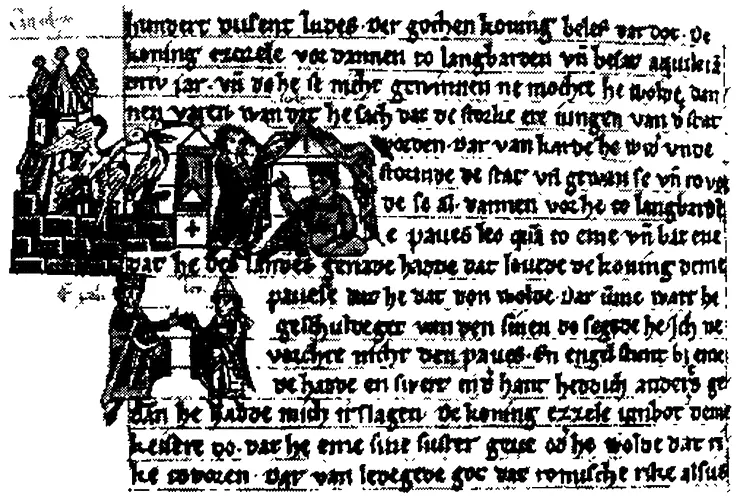 hundert dusent ludes. Der gothen koning beles dar dot. De
koning ezzele vor dannen to langbarden vn̄ besat aquileia
driu jar. vn̄ do he se nicht gewinnen ne mochte he wolde dan
nen varen. wan dat he sach dat de storke ere iungen van d' stat
vorden. Dar van karde he wed' unde
stormde de stat vn̄ gewan se vn̄
de se al. dannen vor he to langbarde
e paues leo quā to eme vn̄ bat eme
dat he des landes genade hadde dat louede de koning deme
pauese dat he dat don wolde. Dar ūme wart he
geschuldeget van den sinen do segede he. Ich ne
vorchte nicht den paues. En engel stunt bi eme
de hadde en swert in d' hant heddich anders ge
dan he hadde mich irslagen. De koning ezzele unbot deme
keisere do. dat he eme sine suster geue od' he wolde dat ri
ke tovoren. Dar van ledegede got dat romische rike alsus